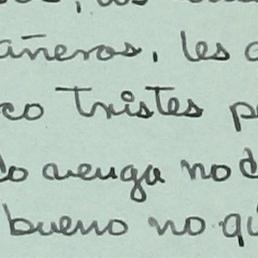 añeros, les
co tristes p
do venga no d
bueno no qu